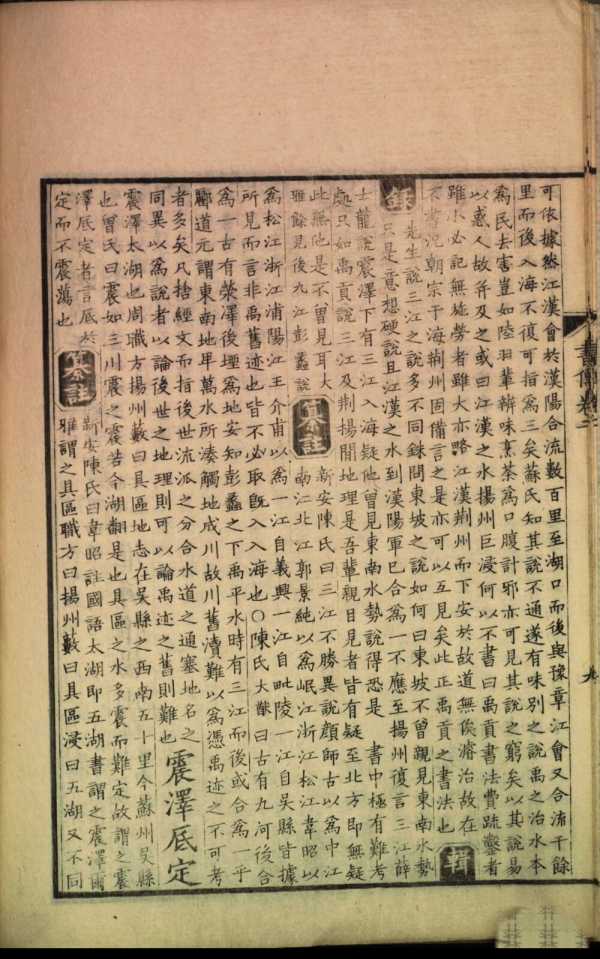 可依據然江漢會於漢陽合流數百里至湖口而後與豫章江會又合流千餘
里而後入海不復可指為三矣蘇氏知其說不通遂有味別之說禹之治水本
為民去害豈如陸羽輩辨味烹茶為口腹計邪亦可見其說之窮矣以其說易
以惑人故并及之或曰江漢之水揚州巨浸何以不書曰禹貢書法費疏鑿者
雖小必記無施勞者雖大亦略江漢荊州而下安於故道無俟濬治故在
不書況朝宗于海荊州固備言之是亦可以互見矣此正禹貢之書法也
輯
錄
先生說三江之說多不同銖問東坡之說如何曰東坡不曾親見東南水勢
只是意想硬說且江漢之水到漢陽軍已合為一不應至揚州復言三江薛
士龍說震澤下有三江入海疑他曾見東南水勢說得恐是 書中極有難考
處只如禹貢說三江及荊揚間地理是吾輩親目見者皆有疑至北方即無疑
此無他是不曾見耳大
雅餘見後九江彭蠡說
纂註
新安陳氏曰三江不勝異說顏師古以為中江
南江北江郭景純以為岷江浙江松江韋昭以
為松江浙江浦陽江王介甫以為一江自義興一江自毗陵一江自吳縣皆據
所見而言非禹舊迹也皆不必取旣入入海也○陳氏大猷曰古有九河後合
為一古有滎澤後堙為地安知彭蠡之下禹平水時有三江而後或合為一乎
酈道元謂東南地卑萬水所湊觸地成川故川舊瀆難以為憑禹迹之不可考
者多矣凡捨經文而指後世流派之分合水道之通塞地名之
同異以為說者以論後世之地理則可以論禹迹之舊則難也
震澤厎定
震澤太湖也周職方揚州藪曰具區地志在吳縣之西南五十里今蘇州吳縣
也曾氏曰震如三川震之震若今湖翻是也具區之水多震而難定故謂之震
澤厎定者言厎於
定而不震蕩也
纂註
新安陳氏曰韋昭註國語太湖即五湖書謂之震澤爾
雅謂之具區職方曰揚州藪曰具區浸曰五湖又不同
書傳卷二
九